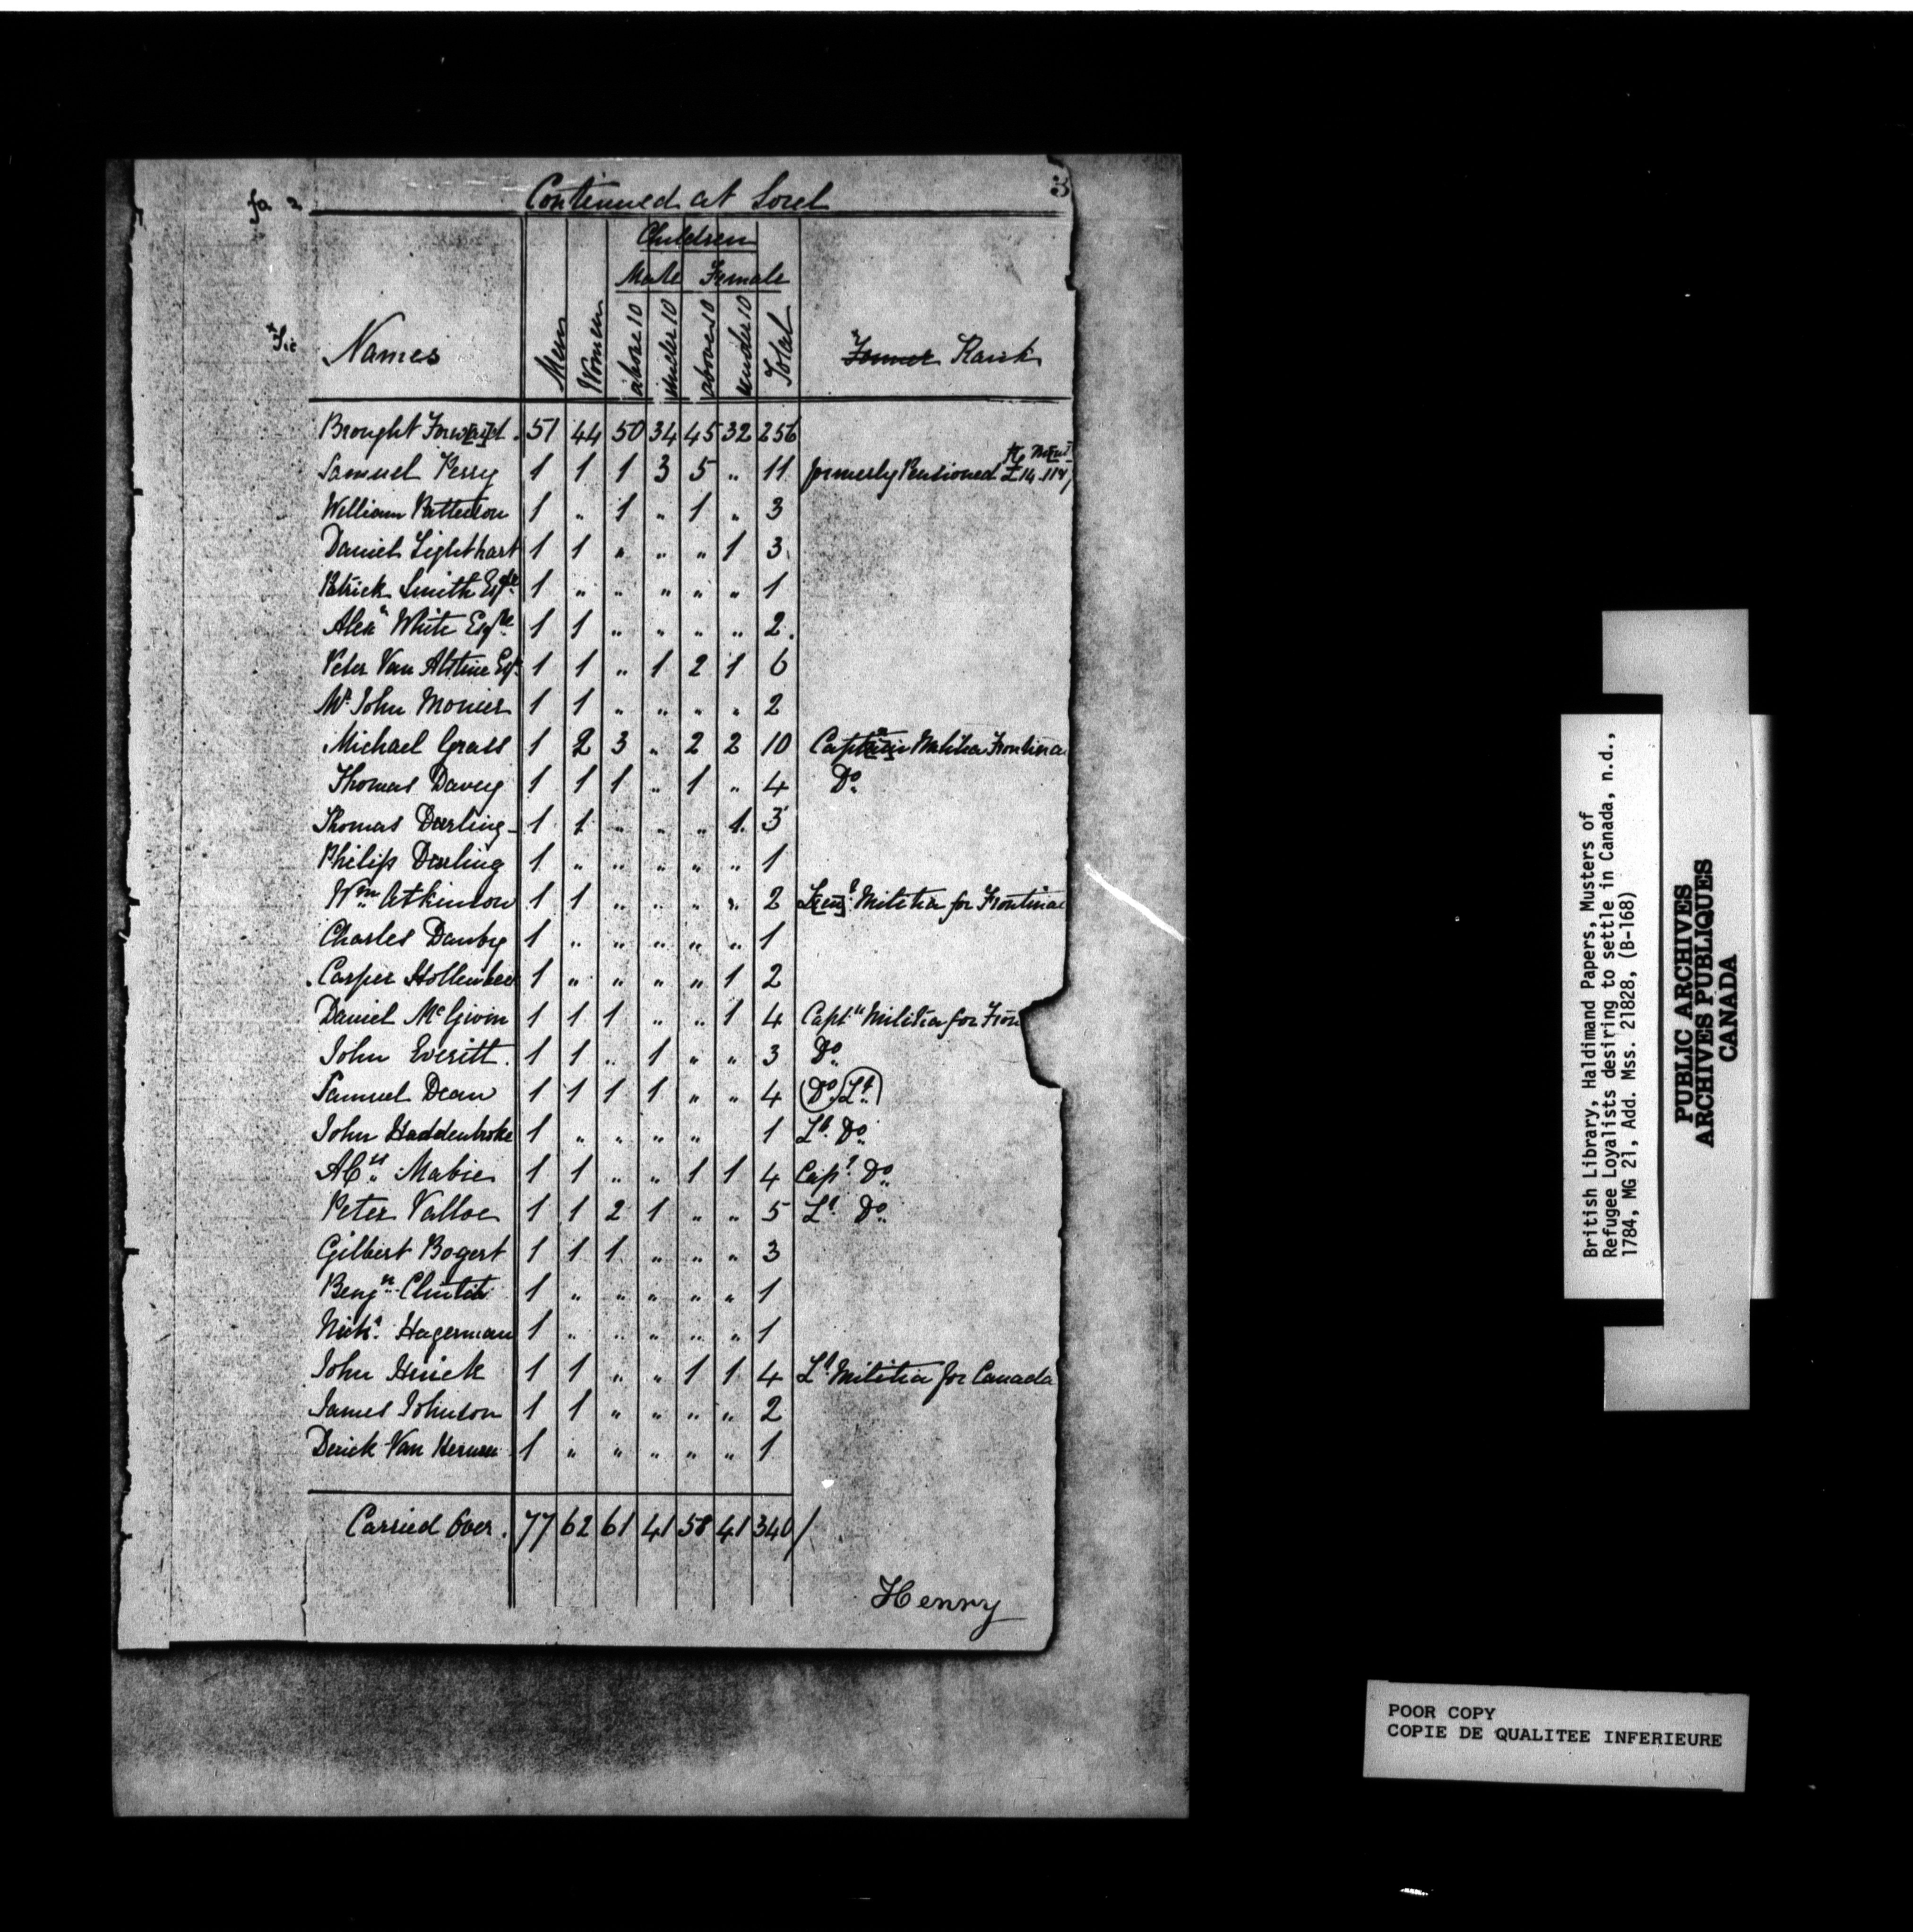 Continued at Sorel
3
fo 2
Children
Male Female
x Sic
Names Men Women above 10 under 10 above 10 under 10 Total x Former Rank
Brought Forw[ar]d. 51 44 50 34 45 32 256
Samuel Perry 1 1 1 3 5 " 11 formerly Pensioned £14
William Patterson 1 " 1 " 1 " 3
Daniel Lighthart 1 1 " " " 1 3
Patrick Smith Esqre 1 " " " " " 1
Alexr White Esqre 1 1 " " " " 2.
Peter Van Alstine Esqr 1 1 " 1 2 1 6
Mr John Monier 1 1 " " " " 2
Michael Grass 1 2 3 " 2 2 10 Capt[ai]n Militia Frontinac
Thomas Davey 1 1 1 " 1 " 4 Do
Thomas Darling 1 1 " " " 1 3
Philip Darling 1 " " " " " 1
Wm Atkinson 1 1 " " " " 2 L[ieu]t Militia for Frontinac
Charles Danby 1 " " " " " 1
Casper Hollenbec 1 " " " " 1 2
Daniel McGivin 1 1 1 " " 1 4 Captn Militia for Fron
John Everitt. 1 1 " 1 " " 3 Do
Samuel Dean 1 1 1 1 " " 4 (Do) (Lt)
John Haddenbroke 1 " " " " 1 Lt Do
Abm Mabie 1 1 " " 1 1 4 Capt Do
Peter Valloe 1 1 2 1 " " 5 Lt Do
Gilbert Bogert 1 1 1 " " " 3
Benjn 1 " " " " " 1
Nichs Hagerman 1 " " " " " 1
John Huick 1 1 " " 1 1 4 Lt Militia for Canada
James Johnson 1 1 " " " " 2
Derick Van 1 " " " " " 1
Carried Over. 77 62 61 41 58 41 340/
Henry
British Library, Haldimand Papers, Musters of
Refugee Loyalists desiring to settle in Canada, n.d.,
1784, MG 21, Add. Mss. 21828, (B-168)
PUBLIC ARCHIVES
ARCHIVES PUBLIQUES
CANADA
POOR COPY
COPIE DE QUALITEE INFERIEURE